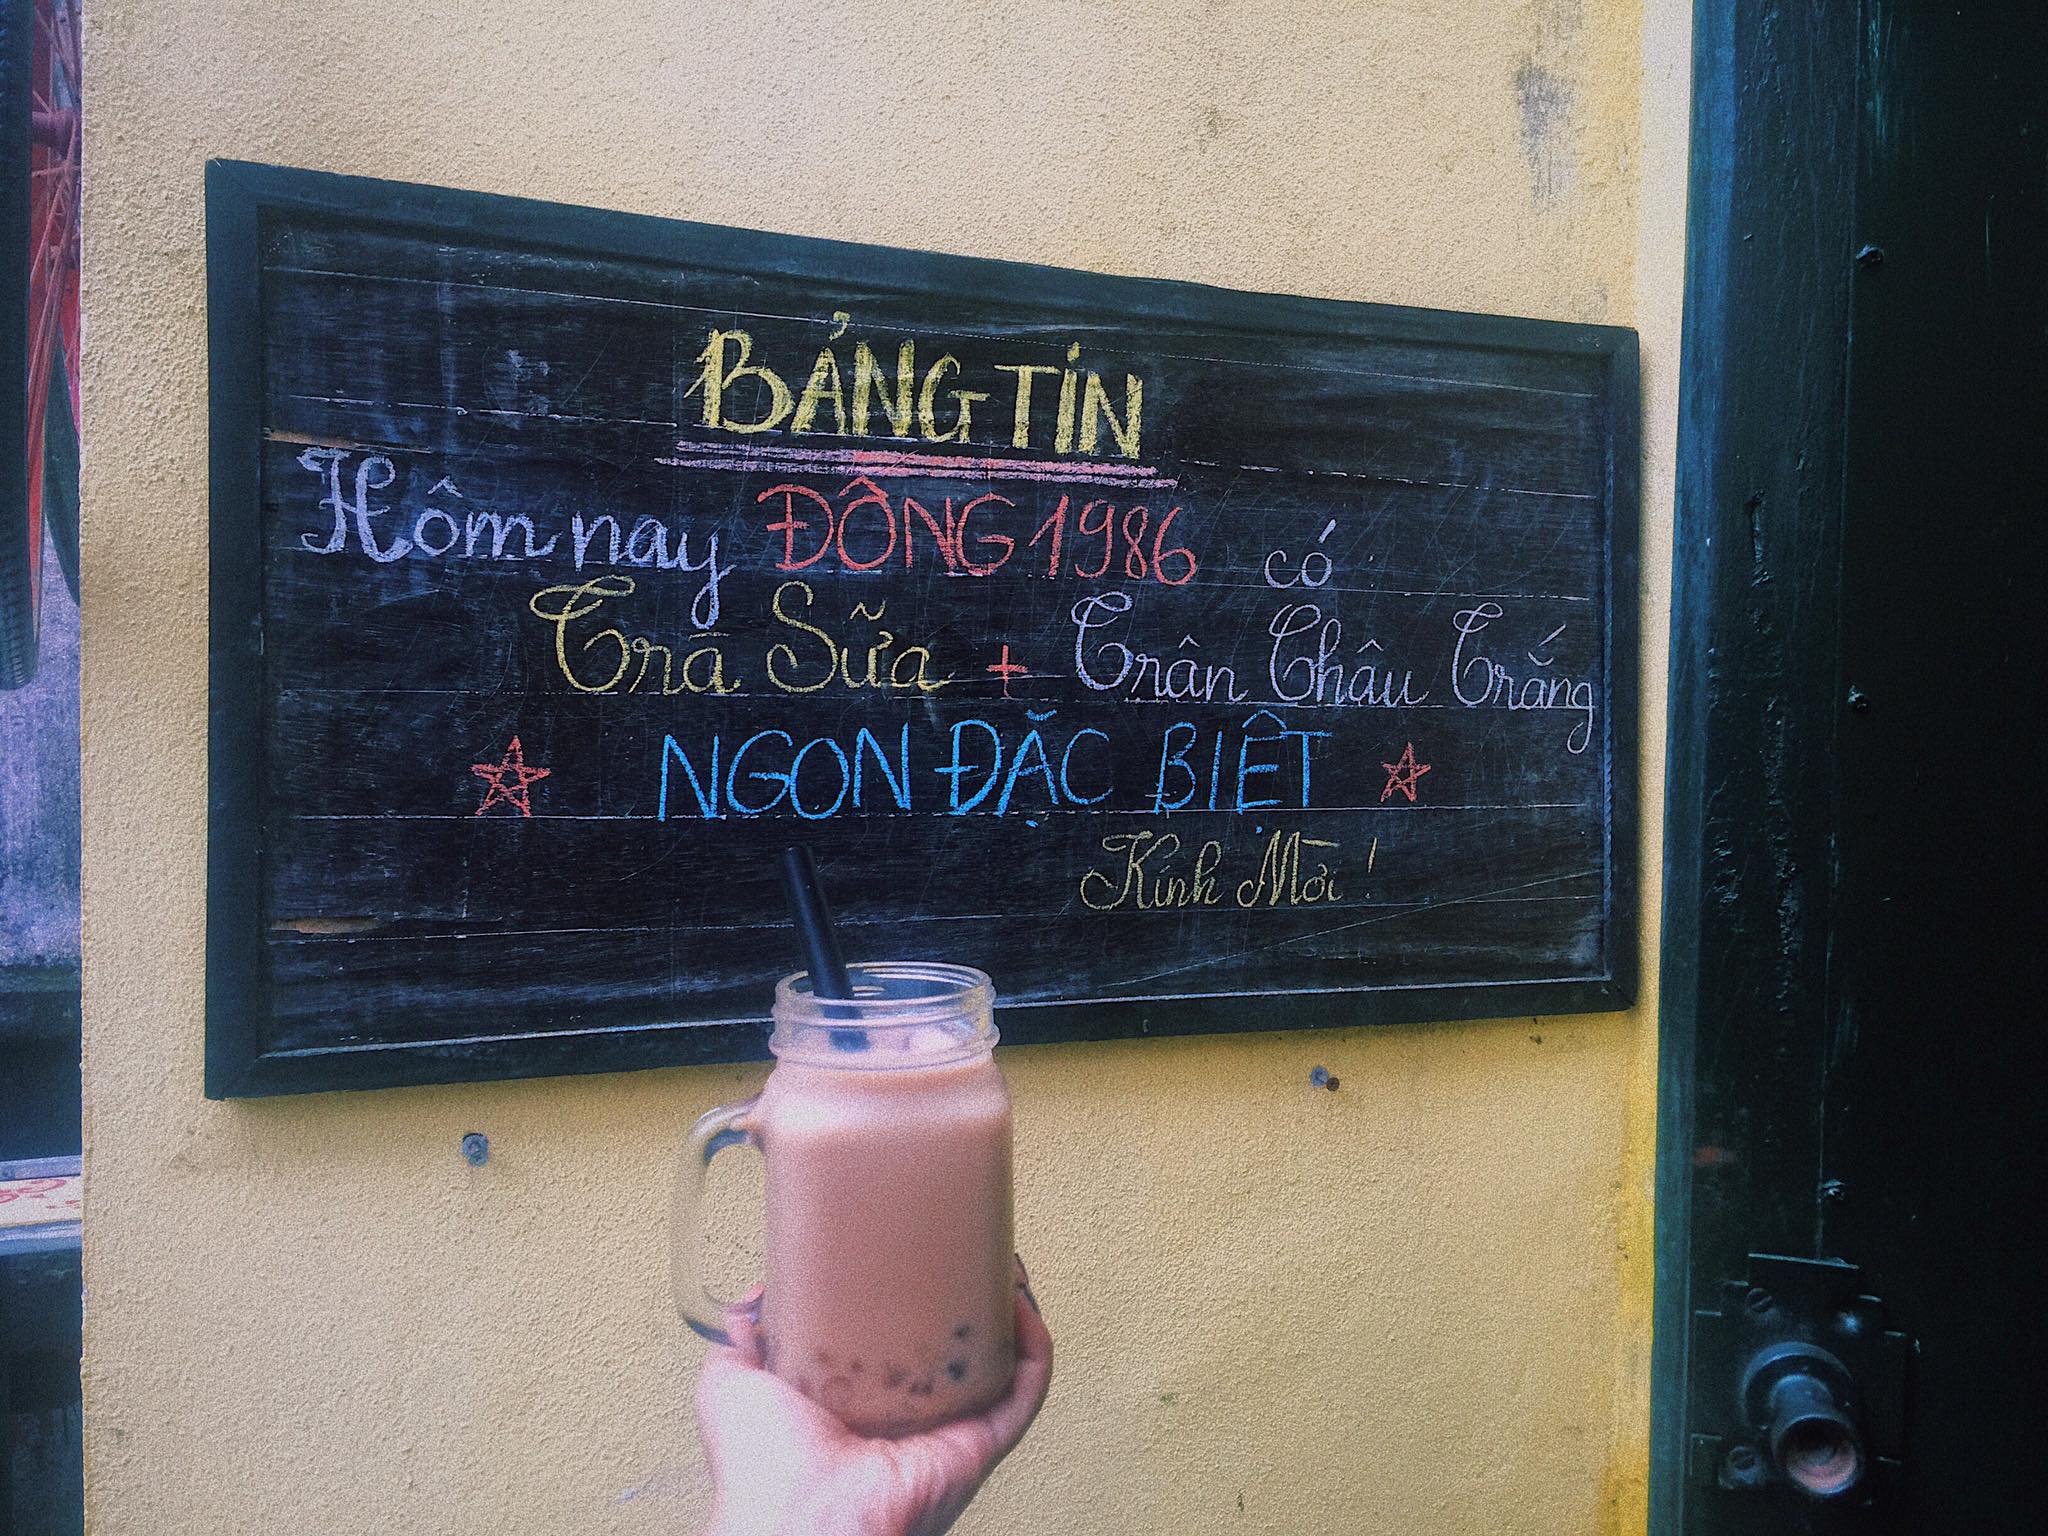 BẢNG TIN
Hôm nay ĐÔNG 1986 có
Trà Sữa + Trân Châu Trắng
NGON ĐẶC BIỆT
Kính Mời !